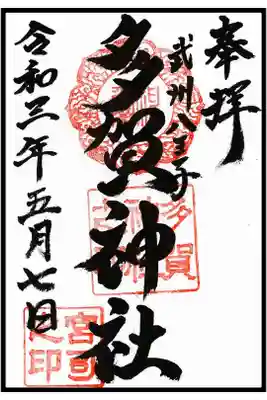 奉拝
武州八王子
多賀神社
令和三年五月七日
多賀
宮司之印